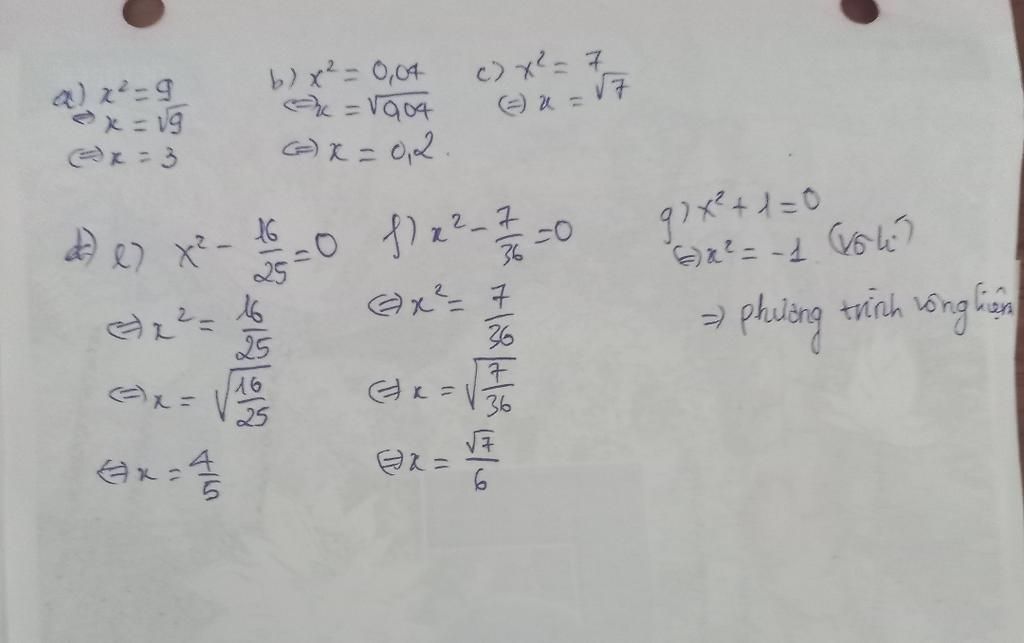 a) x² = 9
⇔ x = √9
⇔ x = 3
b) x² = 0,04
⇔ x = √0,04
⇔ x = 0,2.
c) x² = 7
⇔ x = √7
e) x² - 16/25 = 0
⇔ x² = 16/25
⇔ x = √(16/25)
⇔ x = 4/5
f) x² - 7/36 = 0
⇔ x² = 7/36
⇔ x = √(7/36)
⇔ x = √7/6
g) x² + 1 = 0
⇔ x² = -1 (vô lí)
⇒ phương trình vô nghiệm